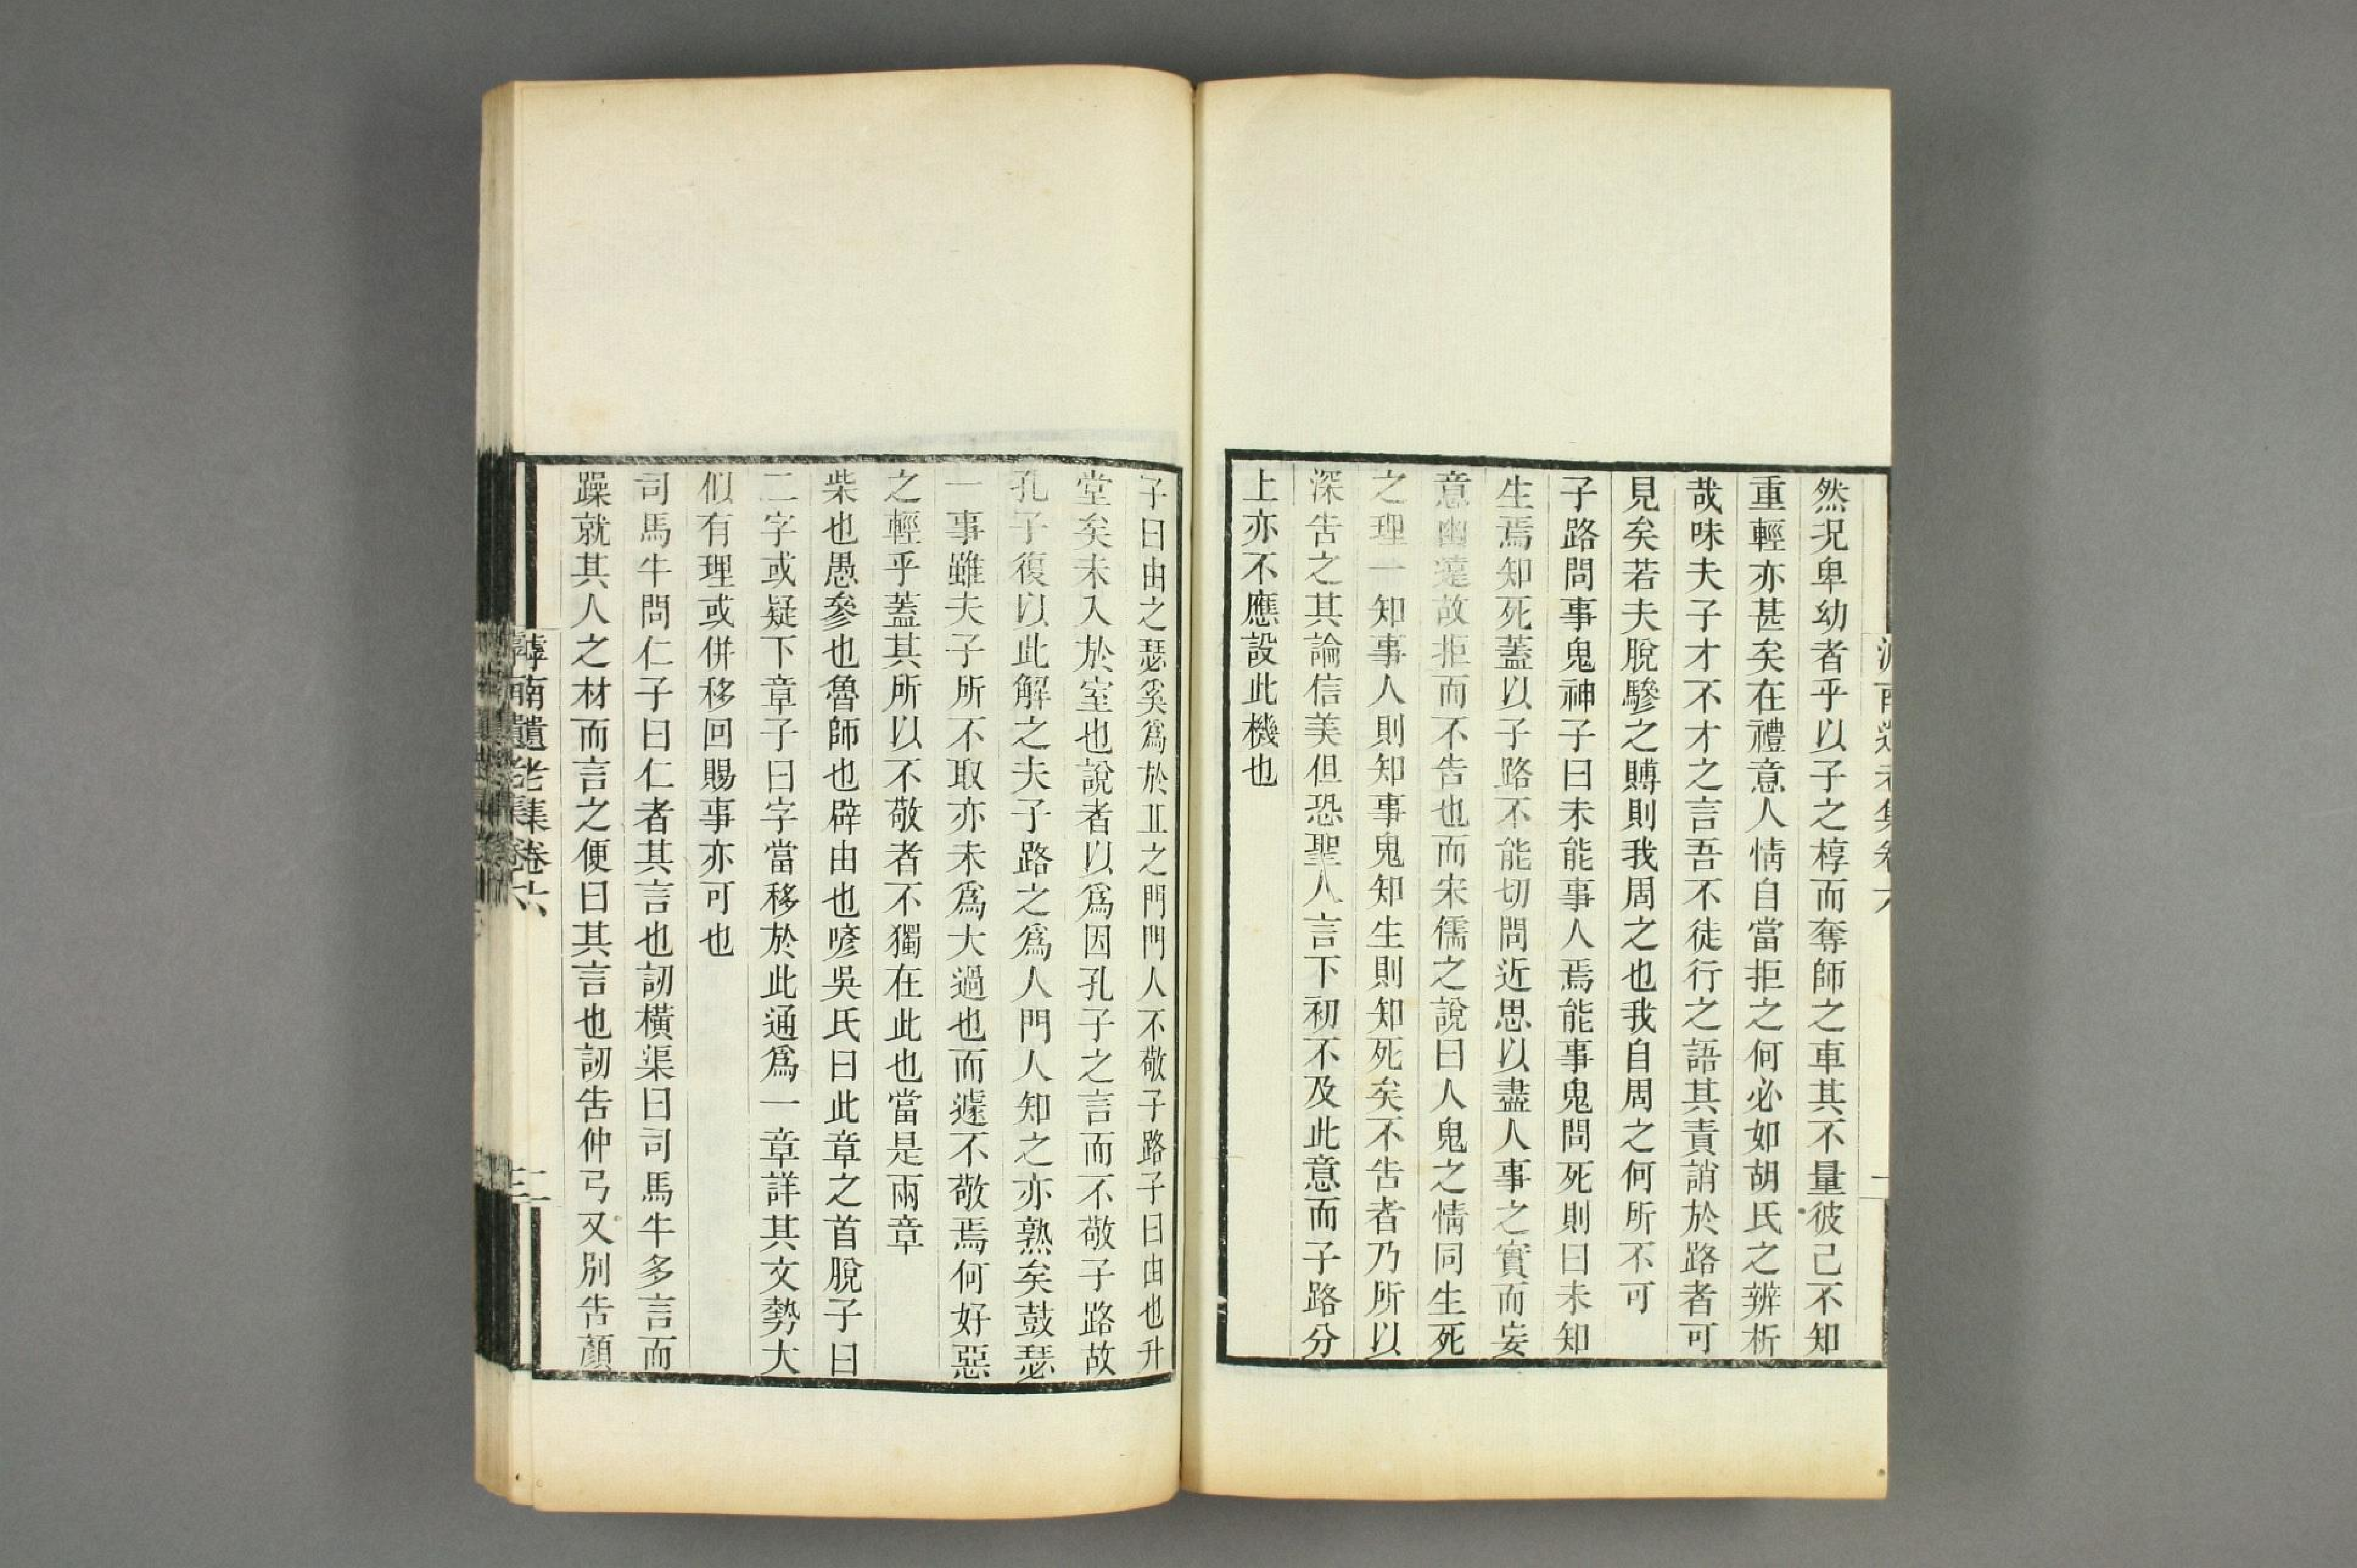 然況卑幼者乎以子之椁而奪師之車其不量彼己不知
重輕亦甚矣在禮意人情自當拒之何必如胡氏之辨析
哉味夫子才不才之言吾不徒行之語其責誚於路者可
見矣若夫脫驂之賻則我周之也我自周之何所不可
子路問事鬼神子曰未能事人焉能事鬼問死則曰未知
生焉知死蓋以子路不能切問近思以盡人事之實而妄
意幽遠故拒而不告也而宋儒之說曰人鬼之情同生死
之理一知事人則知事鬼知生則知死矣不告者乃所以
深告之其論信美但恐聖人言下初不及此意而子路分
上亦不應設此機也
子曰由之瑟奚為於丘之門門人不敬子路子曰由也升
堂矣未入於室也說者以為因孔子之言而不敬子路故
孔子復以此解之夫子路之為人門人知之亦熟矣鼓瑟
一事雖夫子所不取亦未為大過也而遽不敬焉何好惡
之輕乎蓋其所以不敬者不獨在此也當是兩章
柴也愚參也魯師也辟由也喭吳氏曰此章之首脫子曰
二字或疑下章子曰字當移於此通為一章詳其文勢大
似有理或併移回賜事亦可也
司馬牛問仁子曰仁者其言也訒橫渠曰司馬牛多言而
躁就其人之材而言之便曰其言也訒告仲弓又別告顏
滹南遺老集卷六
二